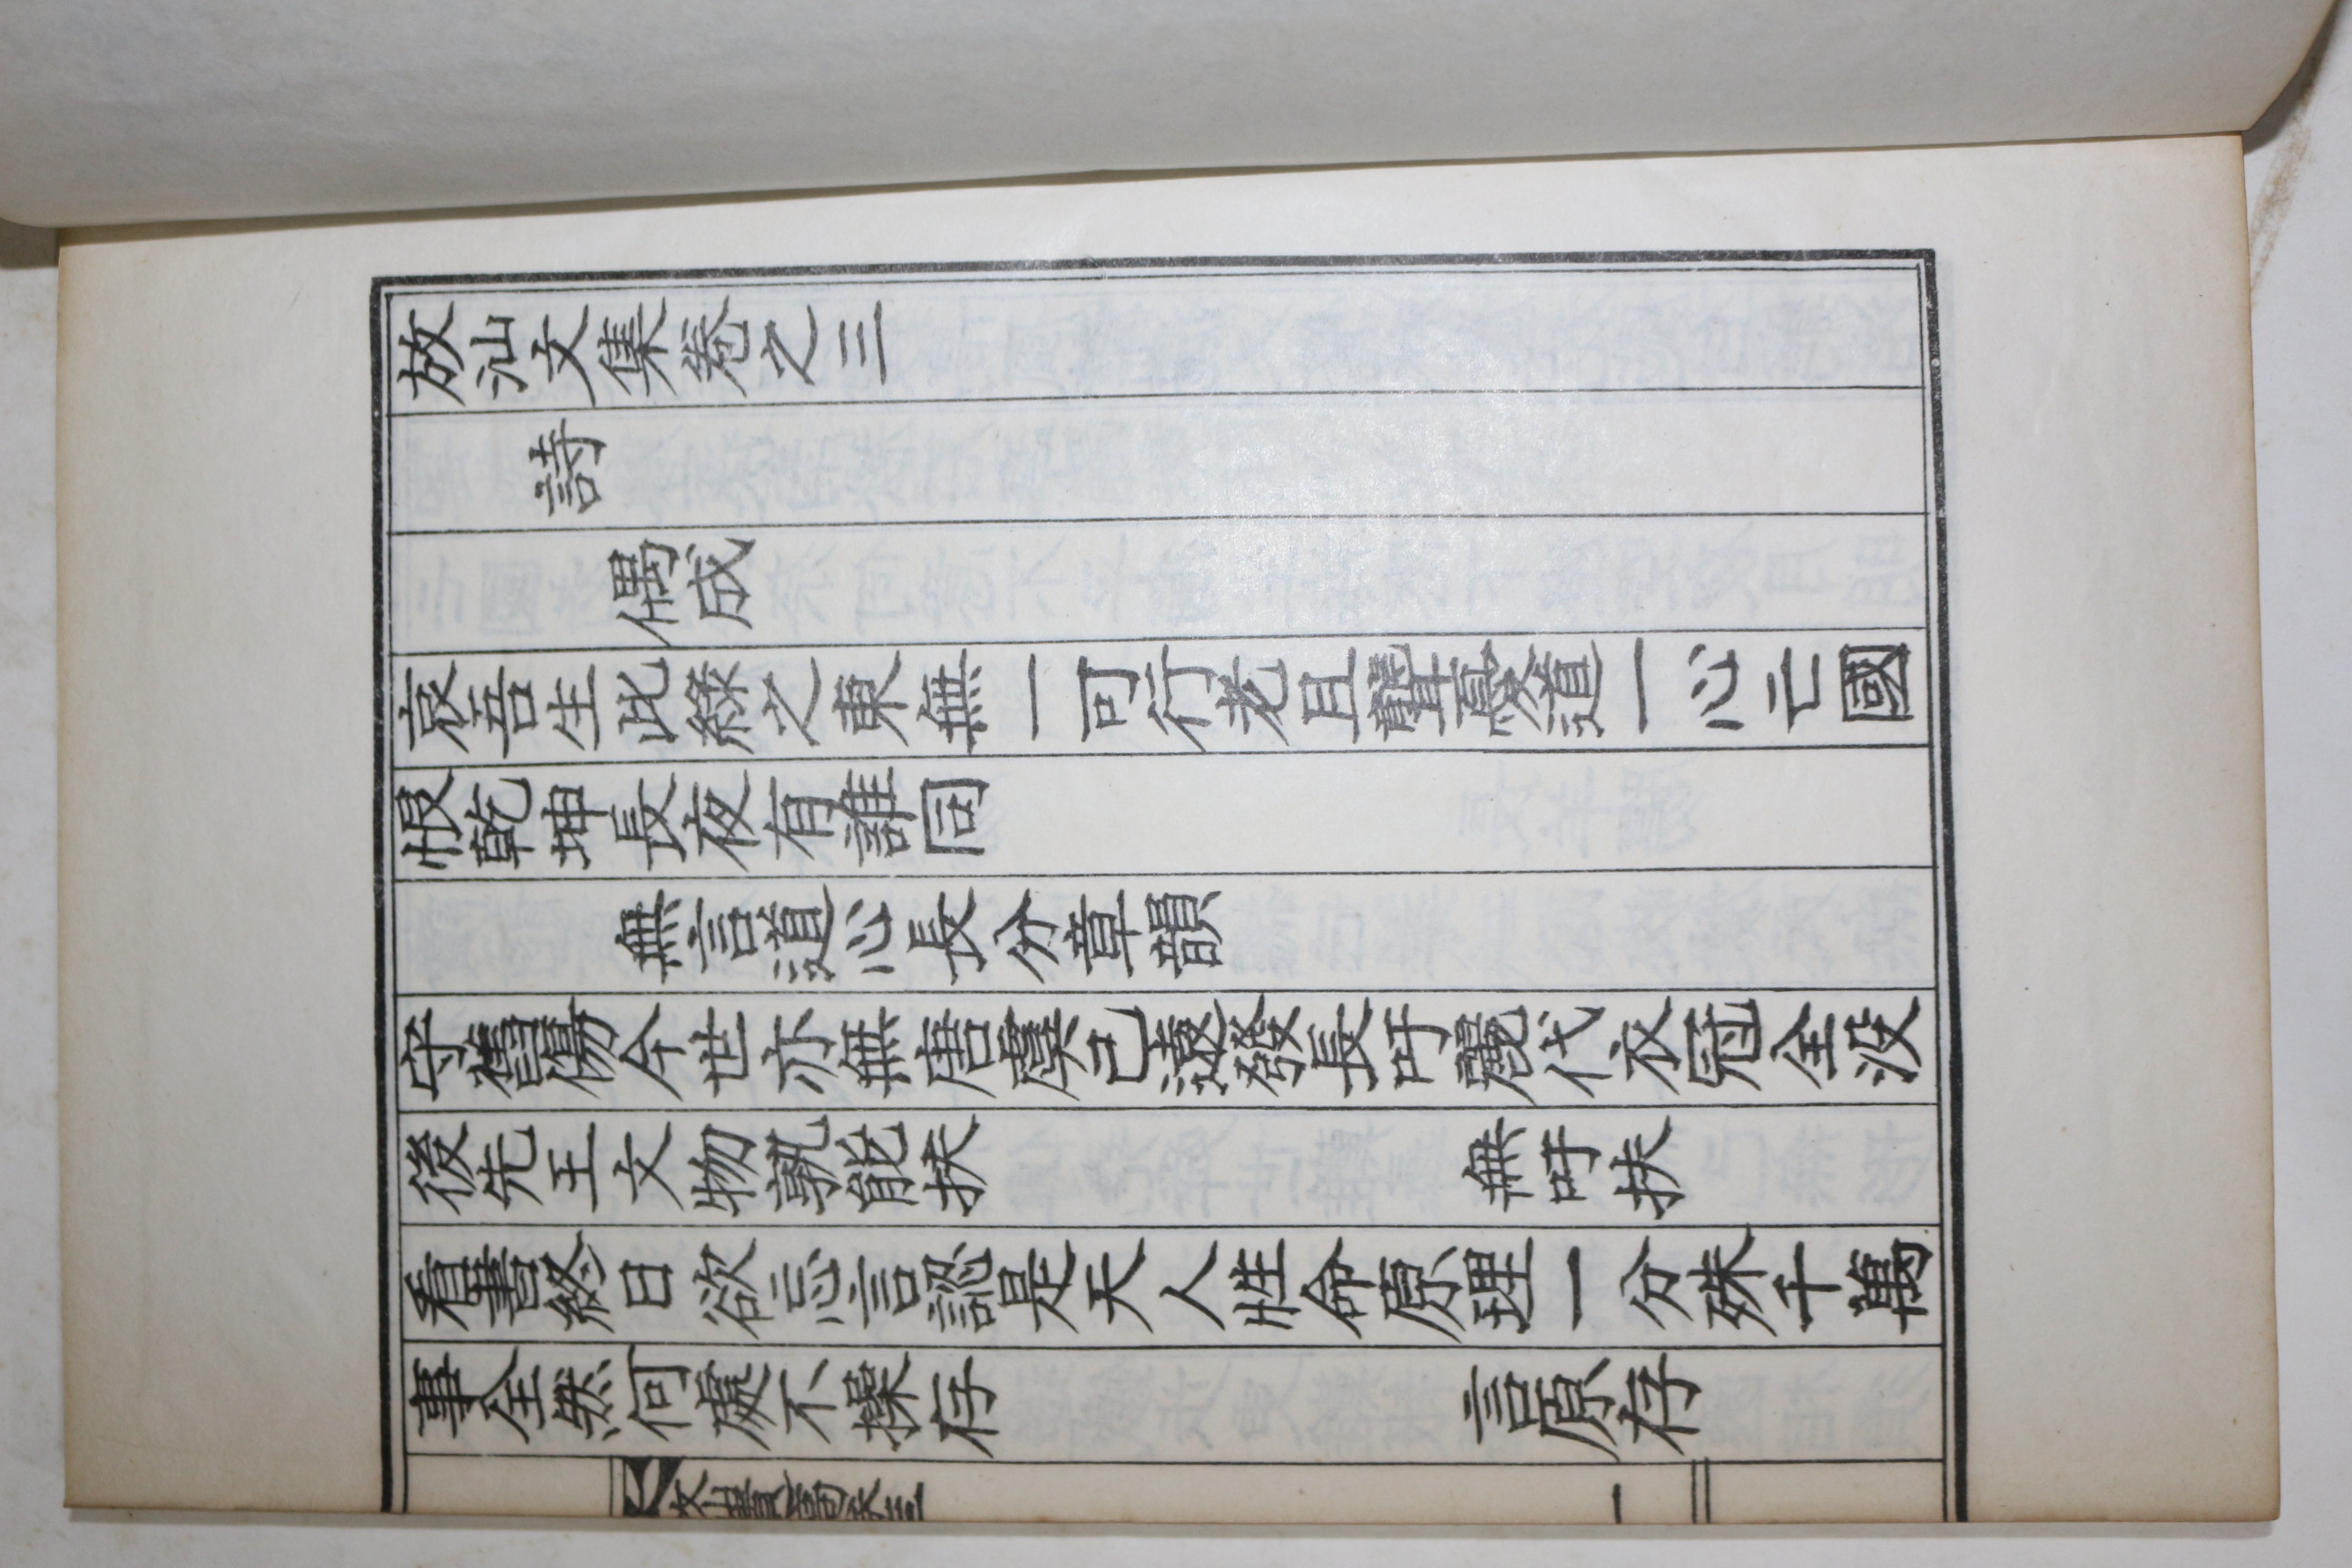 放汕文集卷之三
詩
偶成
哀吾生此綠之東無一可行老且聾憂道一心亡國
恨乾坤長夜有誰同
無言道心長分章韻
守舊傷今世亦無唐虞已遠發長吁麗代衣冠全没
後先王文物孰能扶 無吁扶
看書終日欲忘言認是天人性命原理一分殊千萬
事全然何處不操存 言原存
一